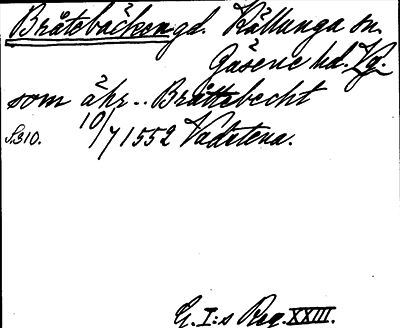 Bråtebäcken gd. Källunga sn.
Gäsene hd. Vg.
som åhr.. Bråttebecht
S. 310. 10/7 1552 Vadstena.
G. I:s Reg. XXIII.